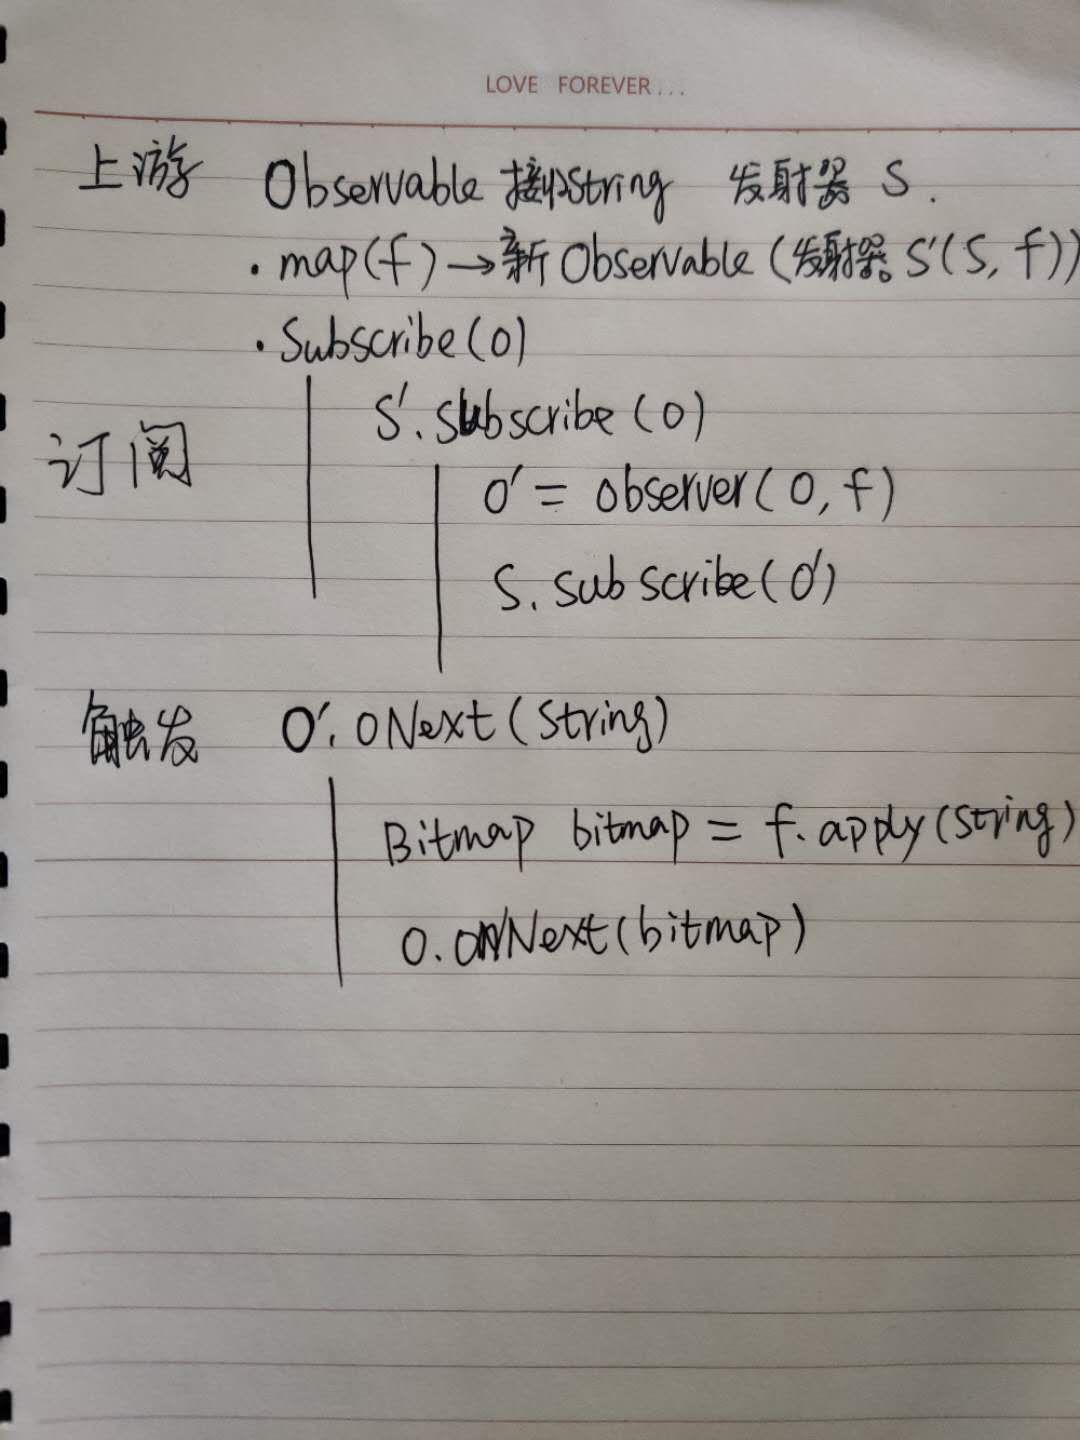 LOVE FOREVER...
上游 Observable 接收String 发射器 S.
·map(f)→新Observable(发射器S'(S,f))
·Subscribe(O)
S'.subscribe(O)
订阅
O'= observer(O,f)
S.subscribe(O')
触发 O'.ONext(String)
Bitmap bitmap = f.apply(String)
O.onNext(bitmap)